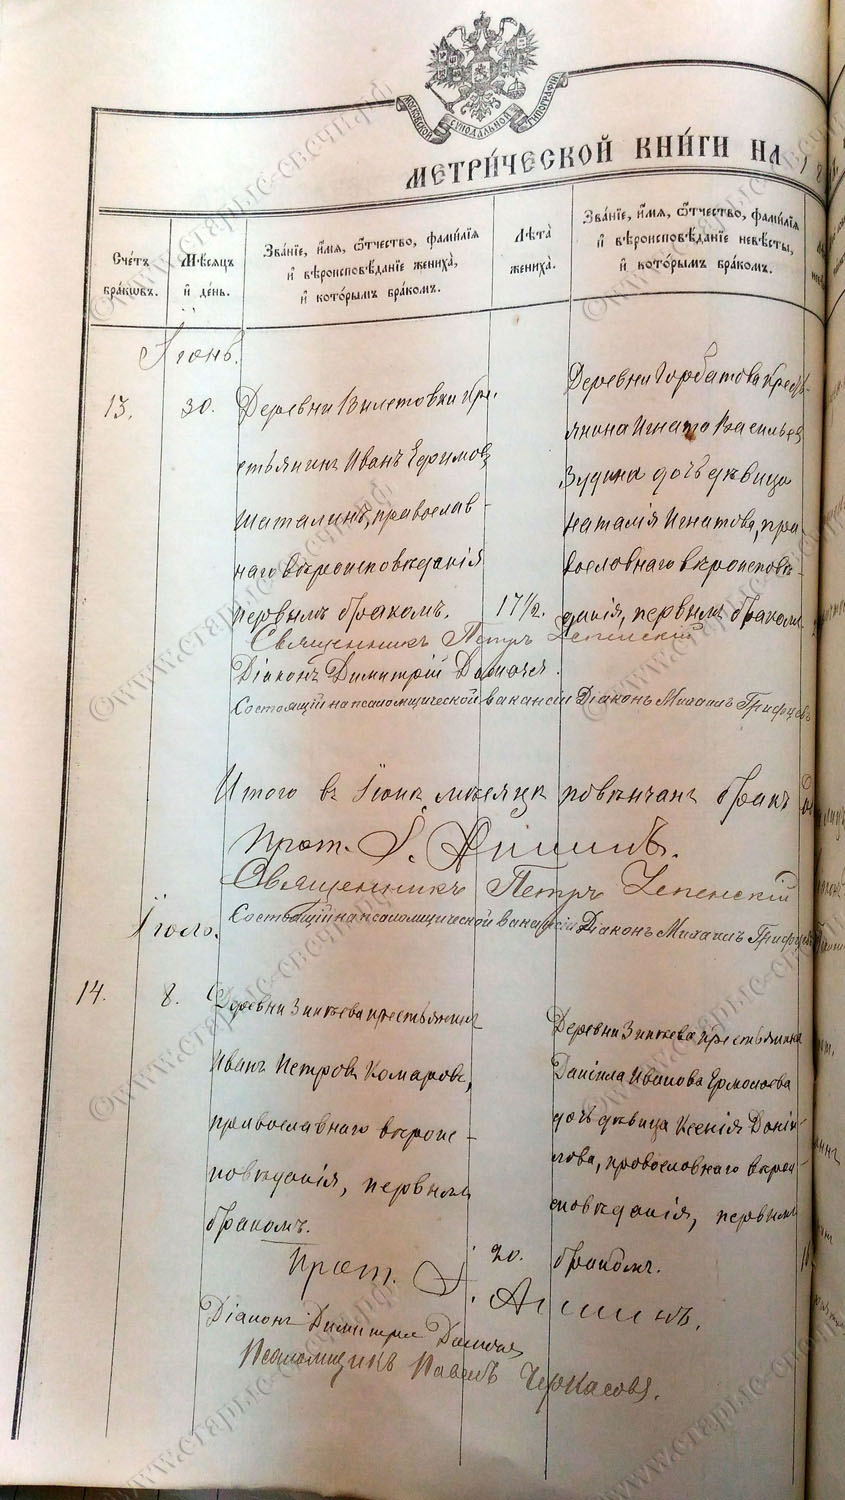 МОСКОВСКОЙ СУНОДАЛЬНОЙ ТИПОГРАФІИ
МЕТРИ́ЧЕСКОЙ КНИ́ГИ НА 18
Сче́тъ бра́кѡвъ.
Мѣ́сяцъ и҆ де́нь.
Зва́нїе, и҆́мя, ѻ҆́тчество, фами́лїя и҆ вѣроисповѣ́данїе жениха̀, и҆ кото́рымъ бра́комъ.
Лѣта̀ жениха̀.
Зва́нїе, и҆́мя, ѻ҆́тчество, фами́лїя и҆ вѣроисповѣ́данїе невѣ́сты, и҆ кото́рымъ бра́комъ.
Іюнь.
13.
30.
Деревни Вилетовки кре-
стьянинъ Иванъ Ефимовъ
Шаталинъ, православ-
наго вѣроисповѣданія
первымъ бракомъ.
17½.
Деревни Горбатова кресть-
янина Игната Васильева
Зудина дочь дѣвица
Наталія Игнатова, пра-
вославнаго вѣроисповѣ-
данія, первымъ бракомъ.
Священникъ Петръ Успенскій
Діаконъ Димитрій
Состоящій на псаломщической вакансіи Діаконъ Михаилъ Грифцовъ
Итого въ Іюнѣ мѣсяцѣ повѣнчанъ бракъ
Прот. І.
Священникъ Петръ Успенскій
Состоящій на псаломщической вакансіи Діаконъ Михаилъ Грифцовъ
Іюль.
14.
8.
Деревни Зинѣева крестьянинъ
Иванъ Петровъ Комаровъ,
православнаго вѣроис-
повѣданія, первымъ
бракомъ.
20.
Деревни Зинѣева крестьянина
Даніила Иванова Ермолаева
дочь дѣвица Ксенія Дані-
лова, православнаго вѣрои-
сповѣданія, первымъ
бракомъ.
Прот. І.
Діаконъ Димитрій
Псаломщикъ Павелъ Черкасовъ.
©www.старые-свечи.рф